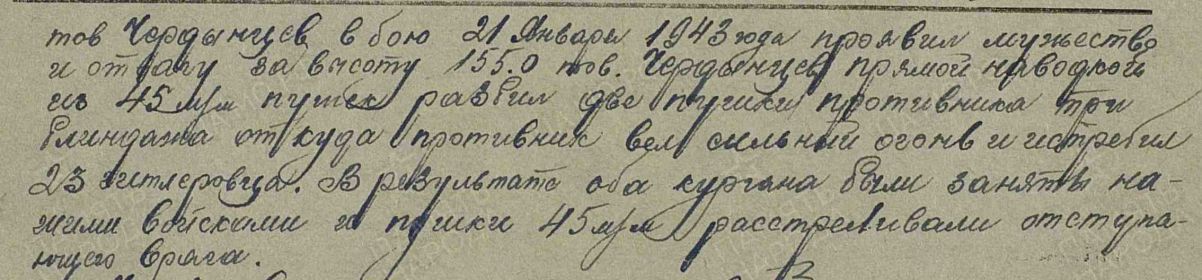 тов Чердынцев в бою 21 Января 1943 года проявил мужество
и отвагу за высоту 155.0 тов. Чердынцев прямой наводкой
из 45 м/м пушек разбил две пушки противника три
блиндажа от куда противник вел сильный огонь и истребил
23 гитлеровца. В результате оба кургана были заняты на-
шими войсками и пушки 45 м/м расстреливали отступа-
ющего врага.